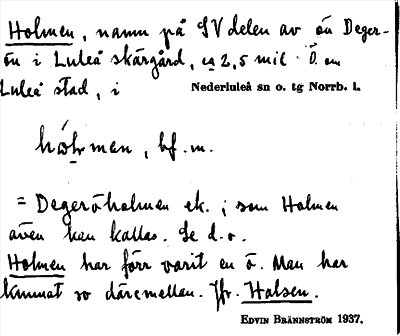 Holmen, namn på SV delen av ön Deger-
ön i Luleå skärgård, ca 2,5 mil Ö. om
Luleå stad, i Nederluleå sn o. tg Norrb. l.
hólmen, bf. m.
= Degeröholmen ek.; som Holmen
även kan kallas. Se d.o.
Holmen har förr varit en ö. Man har
kunnat ro däremellan. Jfr. Halsen.
EDVIN BRÄNNSTRÖM 1937.